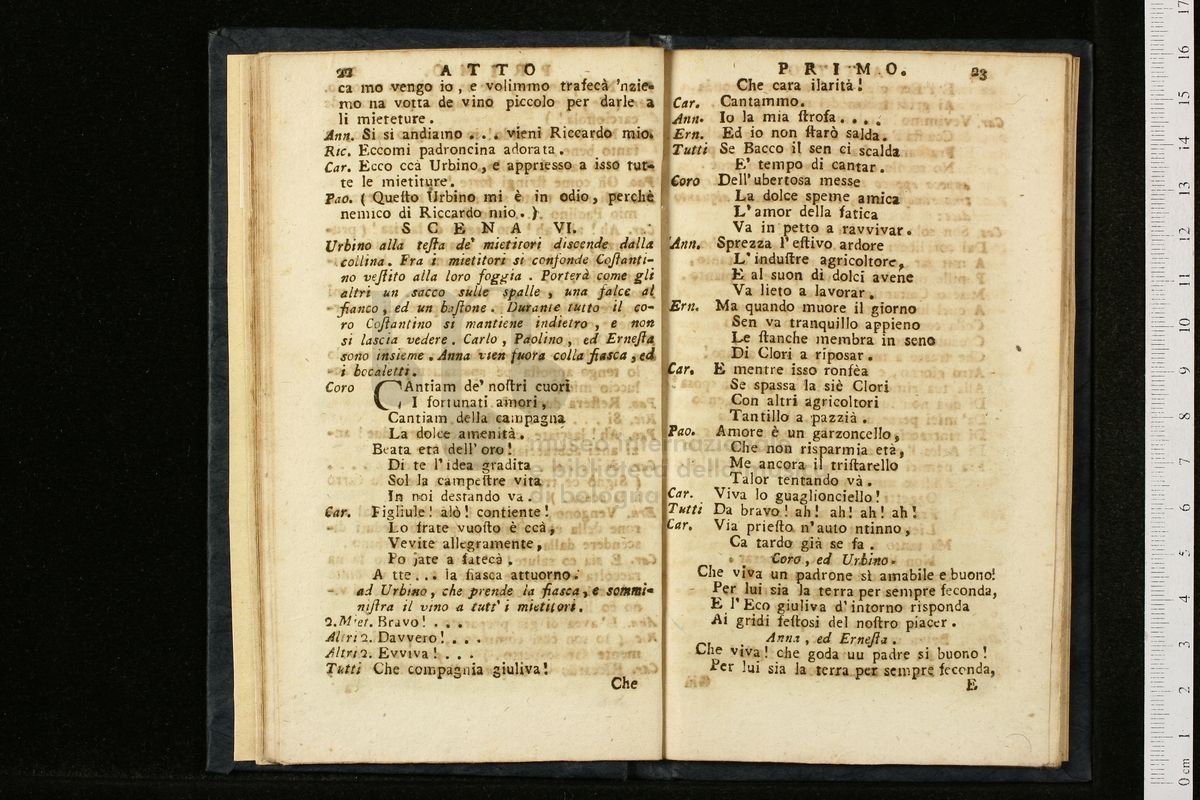 22 ATTO
ca mo vengo io, e volimmo trafecà 'nzie-
mo na votta de vino piccolo per darle a
li mieteture.
Ann. Si si andiamo . . . vieni Riccardo mio.
Ric. Eccomi padroncina adorata.
Car. Ecco ccà Urbino, e appriesso a isso tut-
te le mietiture.
Pao. ( Questo Urbino mi è in odio, perchè
nemico di Riccardo mio. )
SCENA VI.
Urbino alla testa de' mietitori discende dalla
collina. Fra i mietitori si confonde Costanti-
no vestito alla loro foggia. Porterà come gli
altri un sacco sulle spalle, una falce al
fianco, ed un bastone. Durante tutto il co-
ro Costantino si mantiene indietro, e non
si lascia vedere. Carlo, Paolino, ed Ernesta
sono insieme. Anna vien fuora colla fiasca, ed
i bocaletti.
Coro CAntiam de' nostri cuori
I fortunati amori,
Cantiam della campagna
La dolce amenità.
Beata età dell' oro!
Di te l'idea gradita
Sol la campestre vita
In noi destando va.
Car. Figliule! alò! contiente!
Lo frate vuosto è ccà,
Vevite allegramente,
Po jate a fatecà.
A tte... la fiasca attuorno.
ad Urbino, che prende la fiasca, e sommi-
nistra il vino a tutt' i mietitori.
2. Miet. Bravo! . . .
Altri 2. Davvero! . . .
Altri 2. Evviva! . . .
Tutti Che compagnia giuliva!
Che
PRIMO. 23
Che cara ilarità!
Car. Cantammo.
Ann. Io la mia strofa . . . .
Ern. Ed io non starò salda.
Tutti Se Bacco il sen ci scalda
E' tempo di cantar.
Coro Dell'ubertosa messe
La dolce speme amica
L'amor della fatica
Va in petto a ravvivar.
Ann. Sprezza l'estivo ardore
L'industre agricoltore,
E al suon di dolci avene
Va lieto a lavorar.
Ern. Ma quando muore il giorno
Sen va tranquillo appieno
Le stanche membra in seno
Di Clori a riposar.
Car. E mentre isso ronfèa
Se spassa la siè Clori
Con altri agricoltori
Tantillo a pazzià.
Pao. Amore è un garzoncello,
Che non risparmia età,
Me ancora il tristarello
Talor tentando và.
Car. Viva lo guaglionciello!
Tutti Da bravo! ah! ah! ah! ah!
Car. Via priesto n'auto ntinno,
Ca tardo già se fa.
Coro, ed Urbino.
Che viva un padrone sì amabile e buono!
Per lui sia la terra per sempre feconda,
E l'Eco giuliva d'intorno risponda
Ai gridi festosi del nostro piacer.
Anna, ed Ernesta.
Che viva! che goda uu padre si buono!
Per lui sia la terra per sempre feconda,
E
museo internazionale
e biblioteca della musica
di bologna
0 cm 1 2 3 4 5 6 7 8 9 10 11 12 13 14 15 16 17